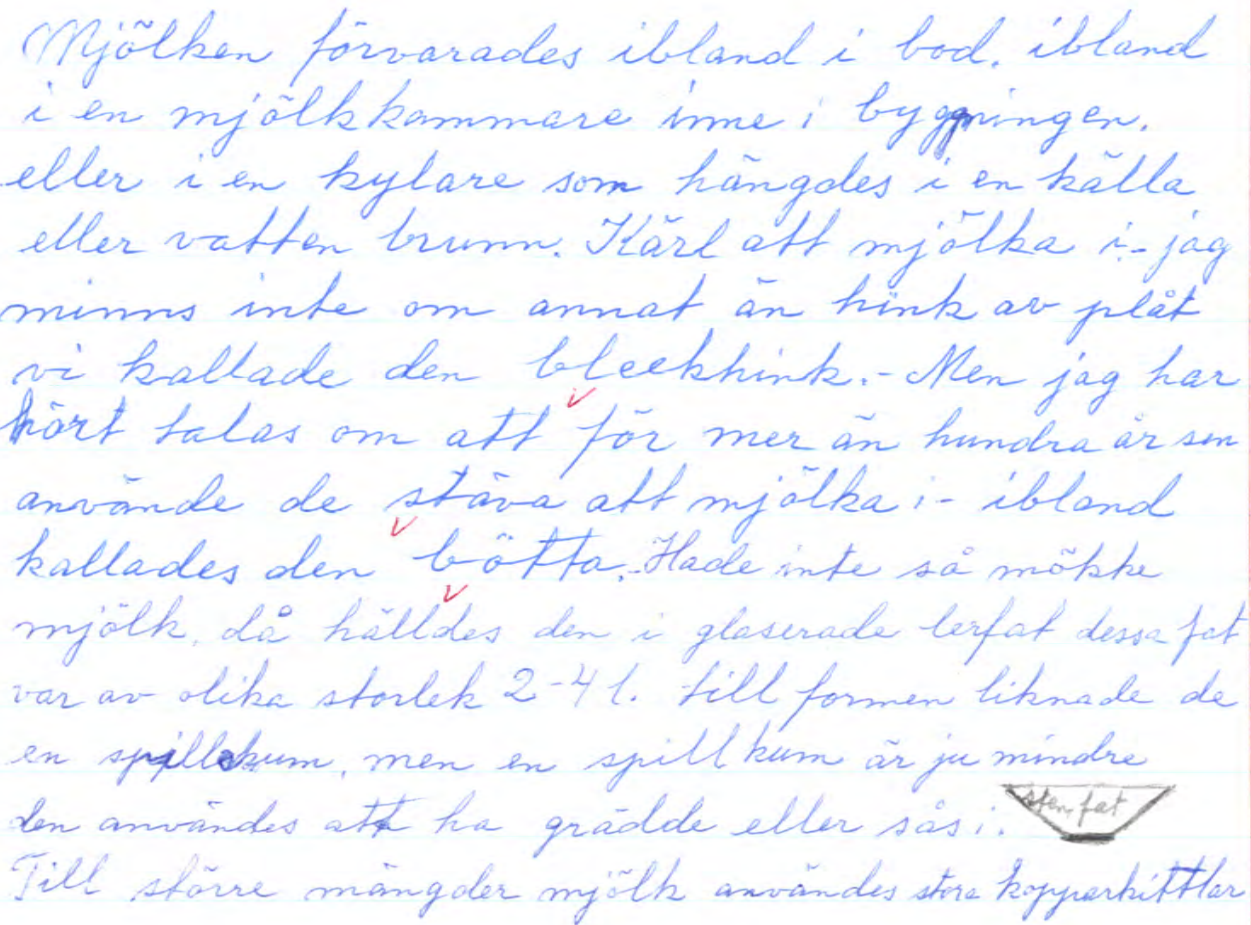 Mjölken förvarades ibland i bod. ibland
i en mjölkkammare inne i byggningen.
eller i en kylare som hängdes i en källa
eller vatten brunn. Kärl att mjölka i.- jag
minns inte om annat än hink av plåt
vi kallade den bleckhink.- Men jag har
hört talas om att för mer än hundra år sen
använde de stäva att mjölka i - ibland
kallades den bötta. Hade inte så mökke
mjölk, då hälldes den i glaserade lerfat dessa fat
var av olika storlek 2-4 l. till formen liknade de
en spillkum, men en spillkum är ju mindre
den användes att ha grädde eller sås i.
sten fat
Till större mängder mjölk användes stora kopparkittlar